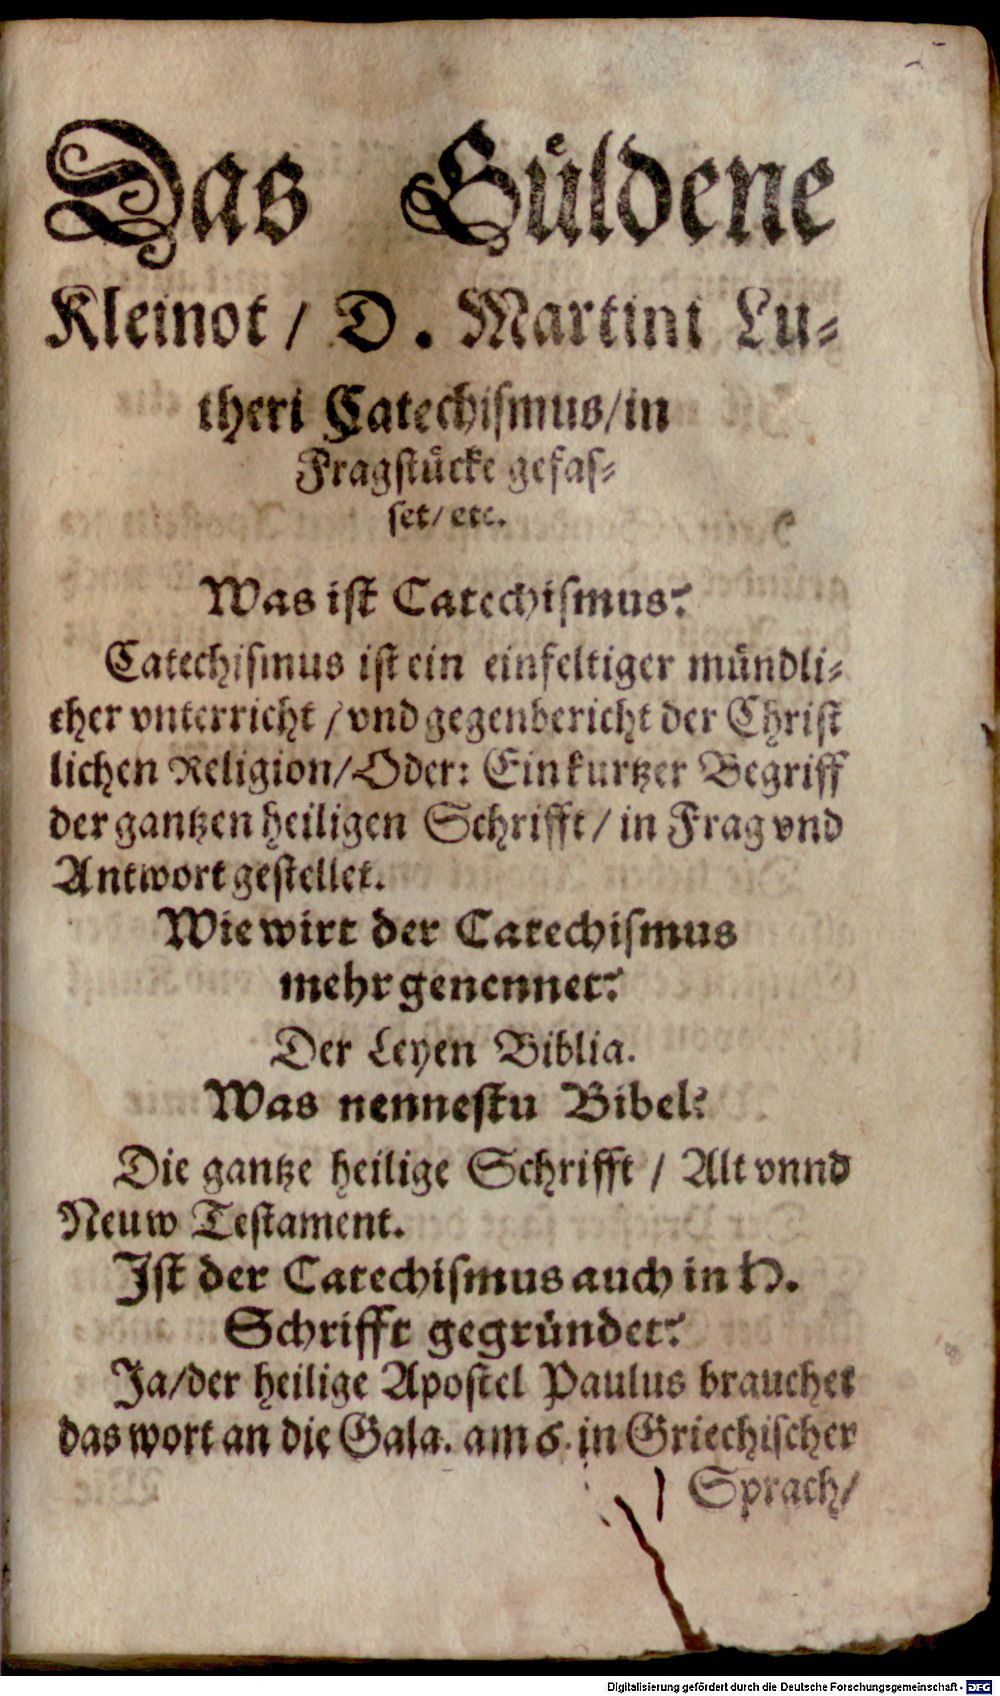 Das Güldene
Kleinot / D. Martini Lu-
theri Catechismus/in
Fragstücke gefas-
set/ etc.
Was ist Catechismus?
Catechismus ist ein einfeltiger mündli-
cher vnterricht / vnd gegenbericht der Christ
lichen Religion/Oder: Ein kurtzer Begriff
der gantzen heiligen Schrifft / in Frag vnd
Antwort gestellet.
Wie wirt der Catechismus
mehr genennet?
Der Leyen Biblia.
Was nennestu Bibel?
Die gantze heilige Schrifft / Alt vnnd
Neuw Testament.
Ist der Catechismus auch in H.
Schrifft gegründet?
Ja/der heilige Apostel Paulus brauchet
das wort an die Gala. am 6. in Griechischer
Sprach/
Digitalisierung gefördert durch die Deutsche Forschungsgemeinschaft - DFG